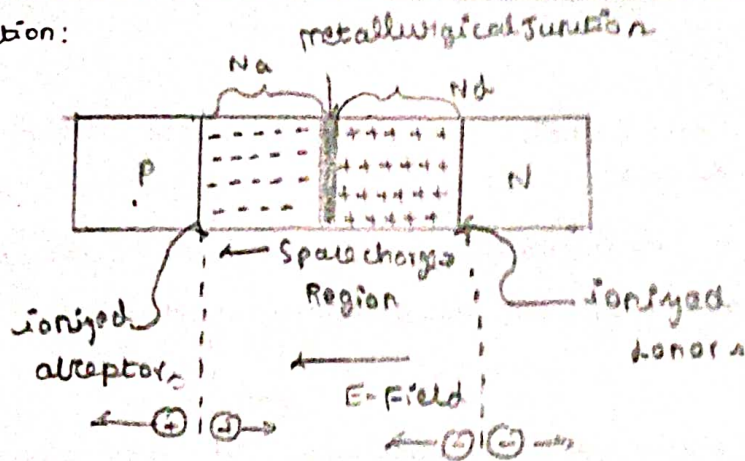 tion:
metallurgical Junction
Na
Nd
- - - - -
- - - -
- - - - -
- - - -
+ + + + +
+ + + + +
+ + + + +
+ + + + +
P
N
Space charge
Region
ionized
acceptors
ionized
donors
E-Field
+ +
- -